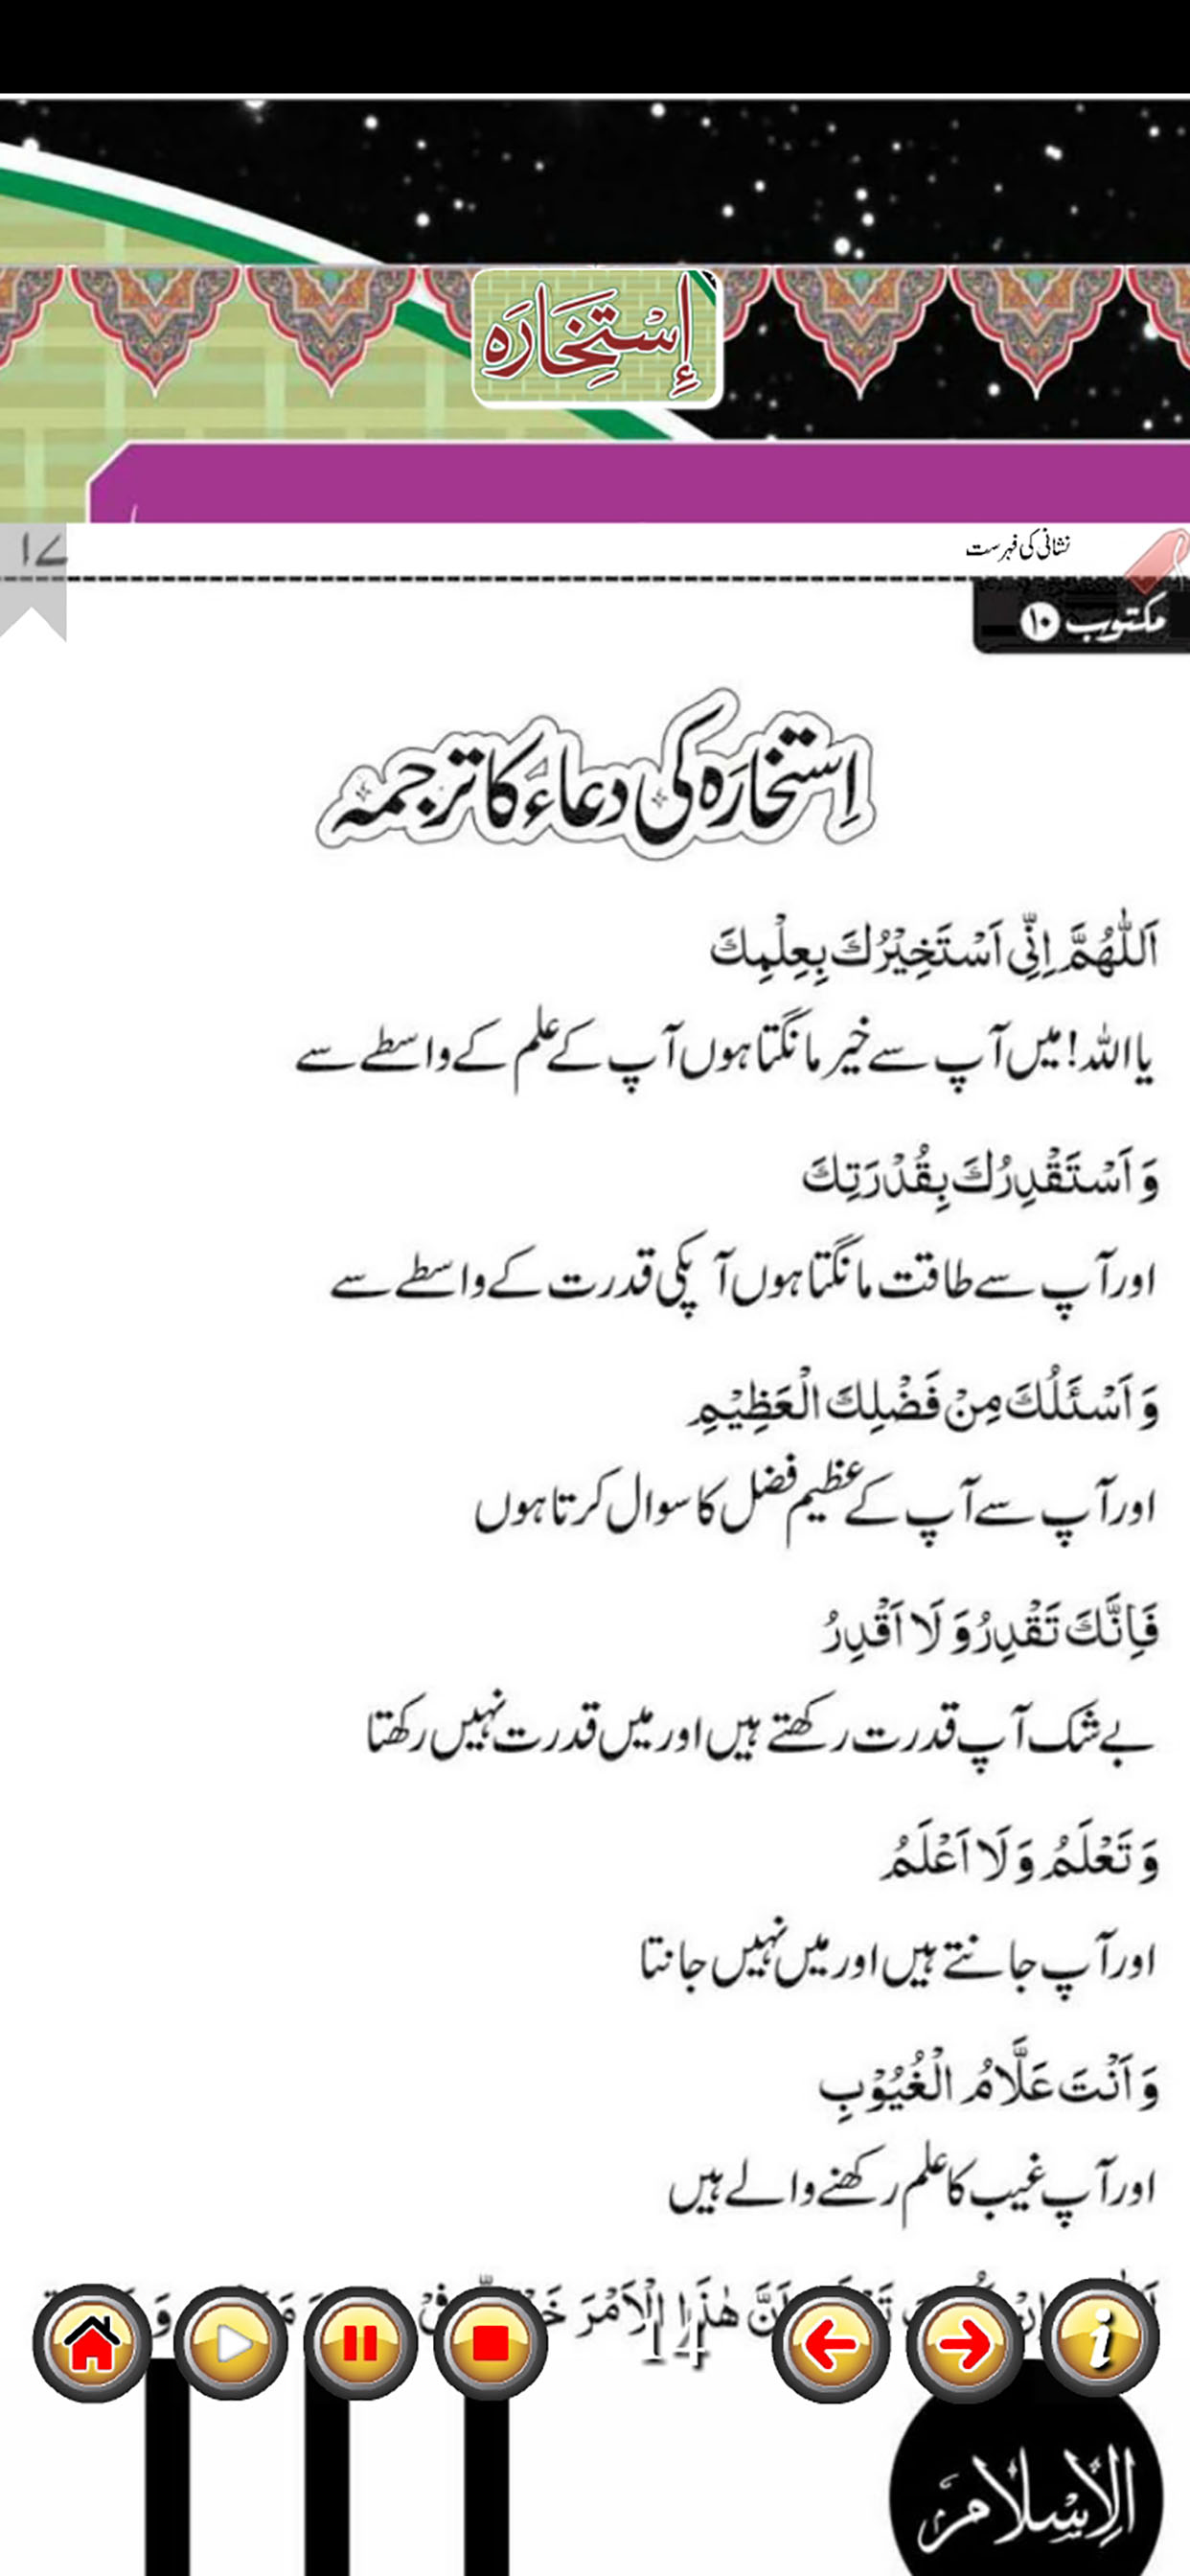 إِسْتِخَارَه
۱۷
نشانی کی فہرست
مکتوب ۱۰
اِستخارَہ کی دعاء کا ترجمہ
اَللّٰهُمَّ اِنِّىْ اَسْتَخِيْرُكَ بِعِلْمِكَ
یا اللہ! میں آپ سے خیر مانگتا ہوں آپ کے علم کے واسطے سے
وَ اَسْتَقْدِرُكَ بِقُدْرَتِكَ
اور آپ سے طاقت مانگتا ہوں آپکی قدرت کے واسطے سے
وَ اَسْئَلُكَ مِنْ فَضْلِكَ الْعَظِيْمِ
اور آپ سے آپ کے عظیم فضل کا سوال کرتا ہوں
فَاِنَّكَ تَقْدِرُ وَ لَا اَقْدِرُ
بے شک آپ قدرت رکھتے ہیں اور میں قدرت نہیں رکھتا
وَ تَعْلَمُ وَ لَا اَعْلَمُ
اور آپ جانتے ہیں اور میں نہیں جانتا
وَ اَنْتَ عَلَّامُ الْغُيُوْبِ
اور آپ غیب کا علم رکھنے والے ہیں
اَنَّ هٰذَا الْاَمْرَ
14
الإسلام